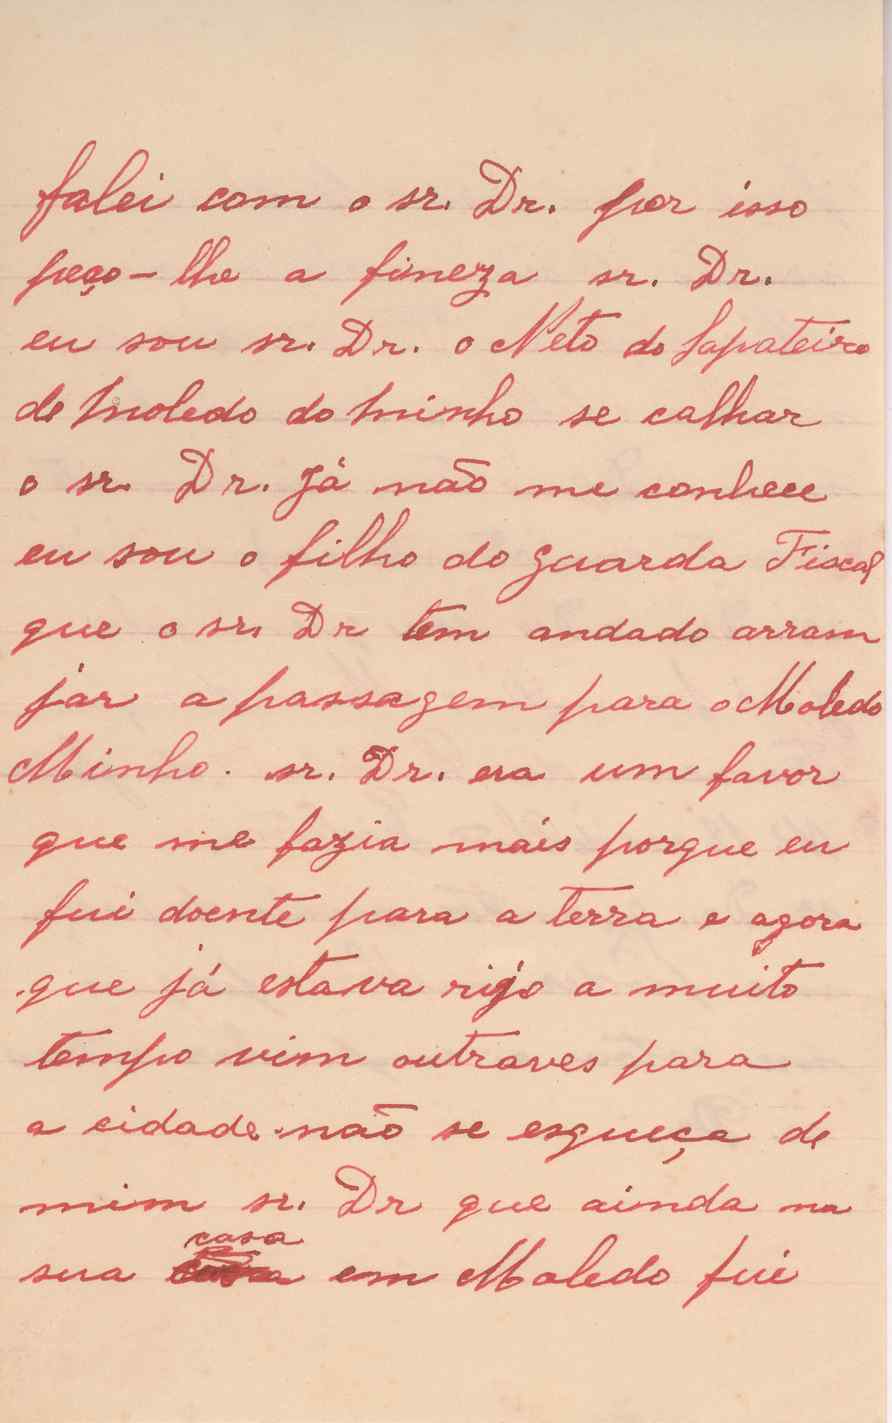 falei com o sr. Dr. por isso
peço-lhe a fineza sr. Dr.
eu sou sr. Dr. o Neto do Sapateiro
de Moledo do Minho se calhar
o sr. Dr. já não me conhece
eu sou o filho do guarda Fiscal
que o sr. Dr tem andado arram
jar a passagem para o Moledo
Minho. sr. Dr. era um favor
que me fazia mais porque eu
fui doente para a terra e agora
que já estava rijo a muito
tempo vim outraves para
a cidade. não se esqueça de
mim sr. Dr que ainda na
sua casa em Moledo fui